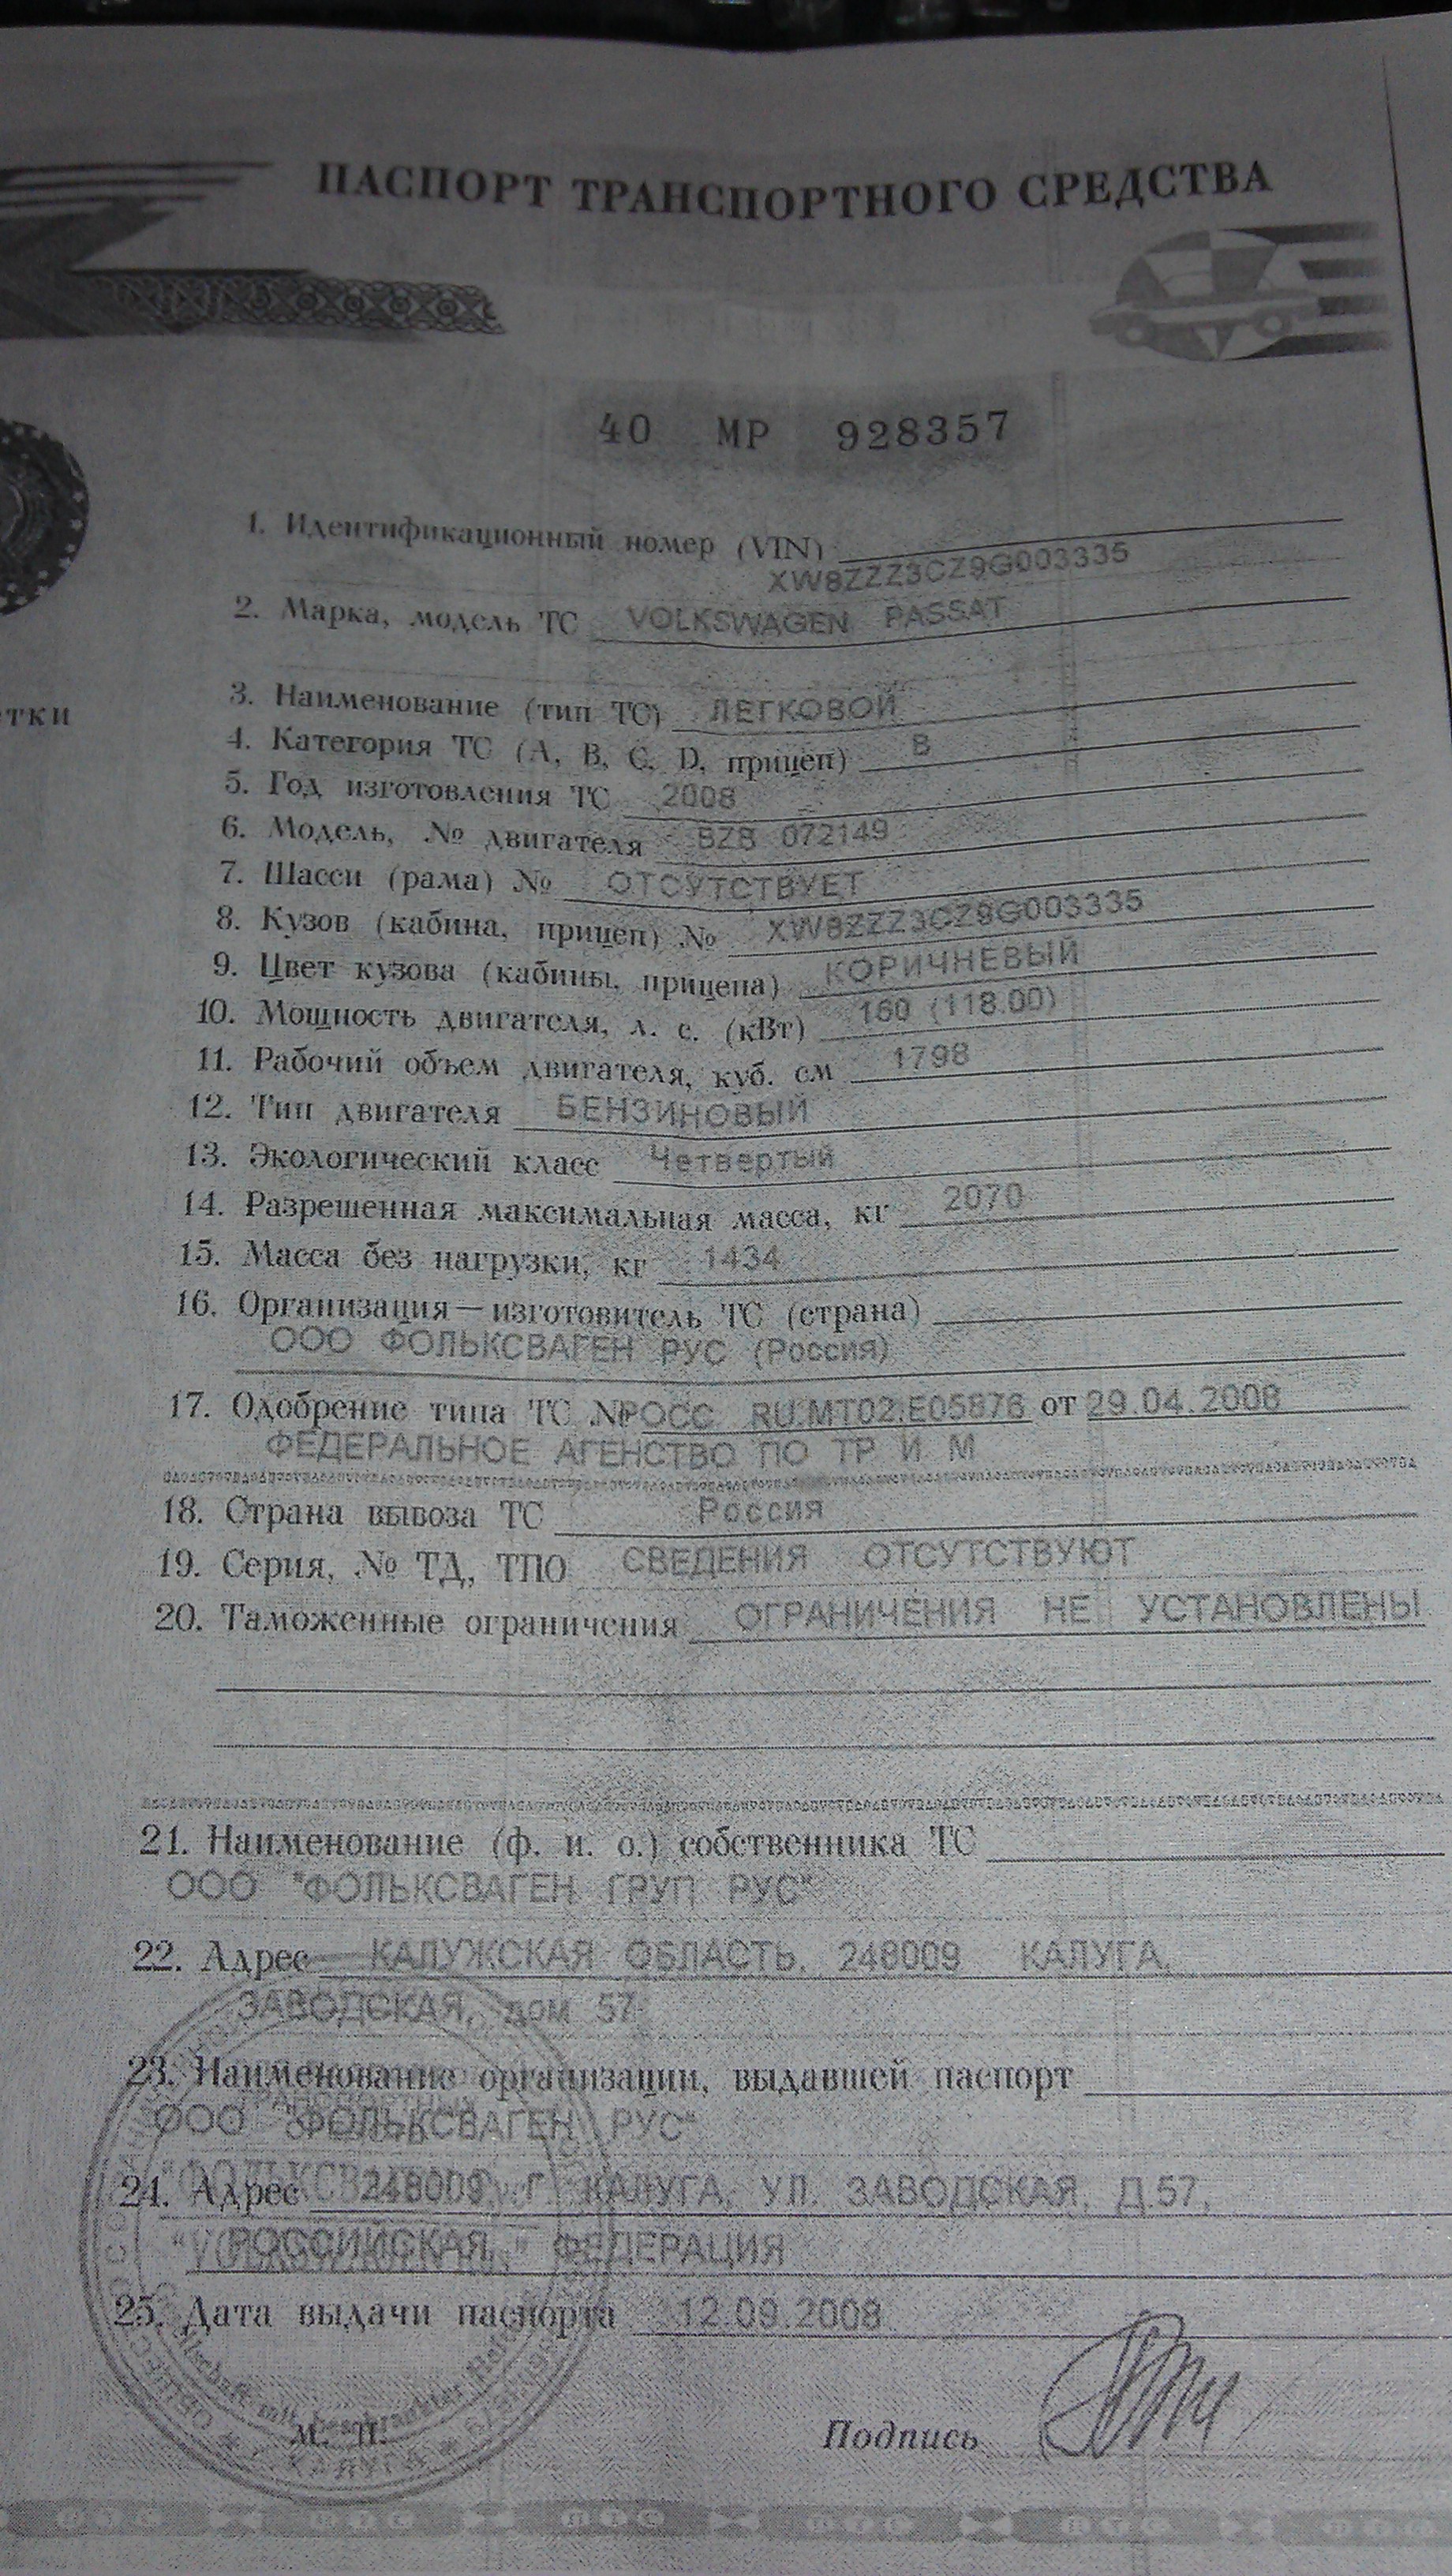 ПАСПОРТ ТРАНСПОРТНОГО СРЕДСТВА
40 МР 928357
1. Идентификационный номер (VIN)
XW8ZZZ3CZ9G003335
2. Марка, модель ТС VOLKSWAGEN PASSAT
3. Наименование (тип ТС) ЛЕГКОВОЙ
тки
4. Категория ТС (А, В, С, D, прицеп) В
5. Год изготовления ТС 2008
6. Модель, № двигателя BZB 072149
7. Шасси (рама) № ОТСУТСТВУЕТ
8. Кузов (кабина, прицеп) № XW8ZZZ3CZ9G003335
9. Цвет кузова (кабины, прицепа) КОРИЧНЕВЫЙ
10. Мощность двигателя, л. с. (кВт) 160 (118.00)
11. Рабочий объем двигателя, куб. см 1798
12. Тип двигателя БЕНЗИНОВЫЙ
13. Экологический класс Четвертый
14. Разрешенная максимальная масса, кг 2070
15. Масса без нагрузки, кг 1434
16. Организация—изготовитель ТС (страна)
ООО ФОЛЬКСВАГЕН РУС (Россия)
17. Одобрение типа ТС № РОСС RU.MT02.E05876 от 29.04.2008
ФЕДЕРАЛЬНОЕ АГЕНСТВО ПО ТР И М
18. Страна вывоза ТС Россия
19. Серия, № ТД, ТПО СВЕДЕНИЯ ОТСУТСТВУЮТ
20. Таможенные ограничения ОГРАНИЧЕНИЯ НЕ УСТАНОВЛЕНЫ
21. Наименование (ф. и. о.) собственника ТС
ООО "ФОЛЬКСВАГЕН ГРУП РУС"
22. Адрес КАЛУЖСКАЯ ОБЛАСТЬ, 248009 КАЛУГА,
ЗАВОДСКАЯ, дом 57
23. Наименование организации, выдавшей паспорт
ООО "ФОЛЬКСВАГЕН РУС"
24. Адрес 248009, Г. КАЛУГА, УЛ. ЗАВОДСКАЯ, Д.57,
РОССИЙСКАЯ ФЕДЕРАЦИЯ
25. Дата выдачи паспорта 12.09.2008
М. П.
Подпись